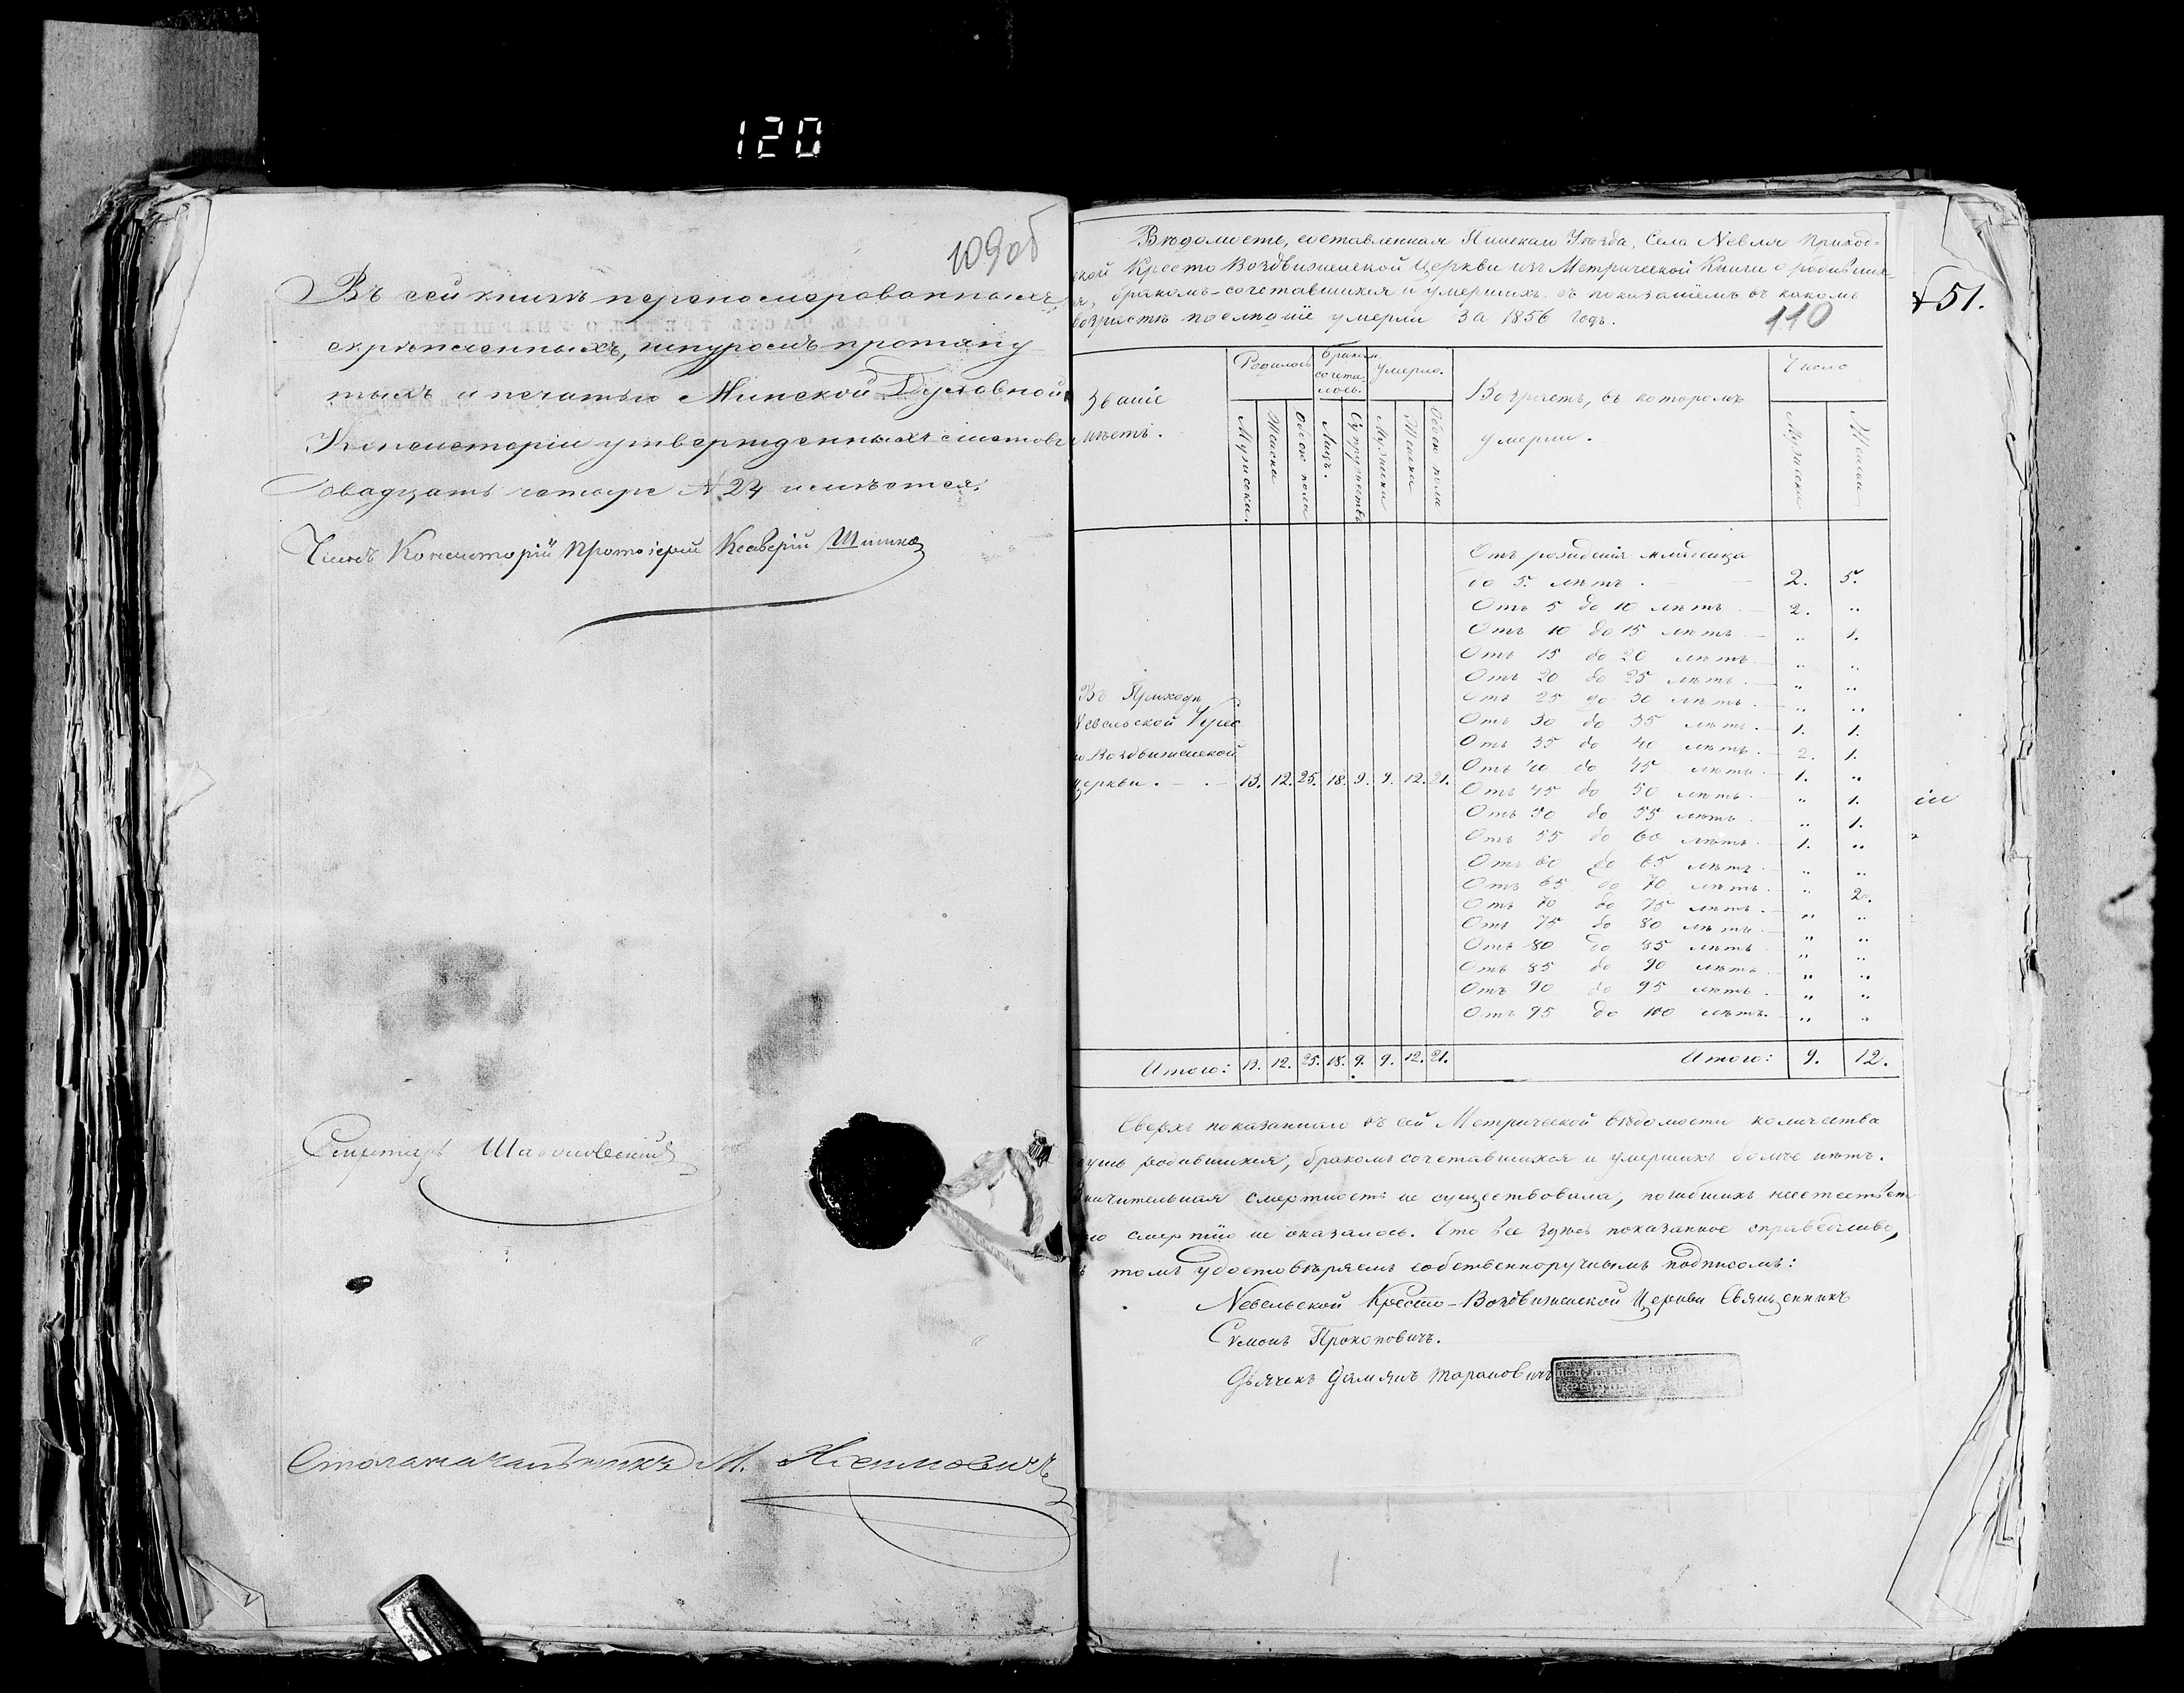 120
109об
Въ сей книгѣ перенумерованныхъ,
скрѣпленныхъ, шнуромъ протяну
тыхъ и печатью Минской Духовной
Консисторіи утвержденныхъ листовъ
двадцать четыре № 24 имѣется.
Членъ Консисторіи Протоіерей Ксаверій
Секретарь
Столоначальникъ М.
Вѣдомость, составленная Пинскаго Уѣзда, Села Невля Приход-
ской Кресто Воздвиженской Церкви изъ Метрической Книги о родивших
ся, бракомъ-сочетавшихся и умершихъ съ показаніемъ въ какомъ
возрастѣ послѣдніе умерли за 1856 годъ.
110
51.
Званіе
мѣстъ.
Родилось
Бракомъ
сочета
лось.
Умерло.
Возрастъ, въ которомъ
умерли.
Число
Мужеска. Женска Обоего пола Лицъ. Супружествъ Мужеска Женска Обоего пола Мужеска Женска
Отъ рожденія младенца
до 5. лѣтъ. 2. 5.
Отъ 5 до 10 лѣтъ 2. "
Отъ 10 до 15 лѣтъ " 1.
Отъ 15 до 20 лѣтъ " "
Отъ 20 до 25 лѣтъ. " "
Отъ 25 до 30 лѣтъ. " "
Отъ 30 до 35 лѣтъ. 1. 1.
Отъ 35 до 40 лѣтъ. 2. 1.
Отъ 40 до 45 лѣтъ. 1. "
Отъ 45 до 50 лѣтъ. " 1.
Отъ 50 до 55 лѣтъ. " 1.
Отъ 55 до 60 лѣтъ. 1. "
Отъ 60 до 65 лѣтъ. " "
Отъ 65 до 70 лѣтъ. " 2.
Отъ 70 до 75 лѣтъ. " "
Отъ 75 до 80 лѣтъ. " "
Отъ 80 до 85 лѣтъ " "
Отъ 85 до 90 лѣтъ. " "
Отъ 90 до 95 лѣтъ. " "
Отъ 95 до 100 лѣтъ. " "
Въ Приходѣ
Невельской Крес
то Воздвиженской
Церкви. 13. 12. 25. 18. 9. 9. 12. 21.
Итого: 13. 12. 25. 18. 9. 9. 12. 21. Итого: 9. 12.
Сверхъ показаннаго въ сей Метрической вѣдомости количества
душъ родившихся, бракомъ сочетавшихся и умершихъ болѣе нѣтъ.
Значительная смертность не существовала, погибшихъ неестествен
ною смертію не оказалось. Что все здѣсь показанное справедливо,
въ томъ удостовѣряемъ собственноручнымъ подписомъ:
Невельской Кресто-Воздвиженской Церкви Священникъ
Симонъ Прокоповичъ.
Дьячекъ Дамянъ Тарановичъ